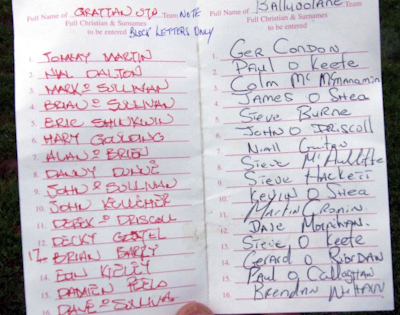 Full Name of GRATTAN UTD Team NOTE
Full Christian & Surnames
to be entered BLOCK LETTERS ONLY
1. TOMMY MARTIN
2. NIAL DALTON
3. MARK O SULLIVAN
4. BRIAN O SULLIVAN
5. ERIC SHINKWIN
6. MARY GOULDING
7. ALAN O BRIEN
8. DANNY DUNNE
9. JOHN O SULLIVAN
10. JOHN KELLEHER
11. DEREK O DRISCOLL
12. DECKY
13. BRIAN BARRY
14. EOIN KIELY
15. DAMIEN
16. DAVE O SULLIVAN
Full Name of Ballyvolane Team
Full Christian & Surnames
to be entered
1. GER CONDON
2. PAUL O KEEFE
3. COLM
4. JAMES O SHEA
5. STEVE BURNE
6. JOHN O DRISCOLL
7. NIALL
8. STEVE McAULIFFE
9. STEVE HACKETT
10. KEVIN O SHEA
11. MARTIN CRONIN
12. DAVE
13. STEVE O KEEFE
14. GERARD O RIORDAN
15. PAUL O CALLAGHAN
16. BRENDAN